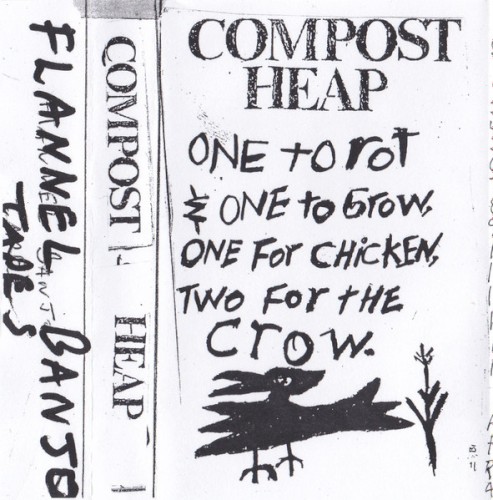 FLANNEL BANJO
TAPES
COMPOST HEAP
COMPOST
HEAP
ONE to rot
& ONE to Grow,
ONE For CHiCKEN,
TWO For tHE
Crow.